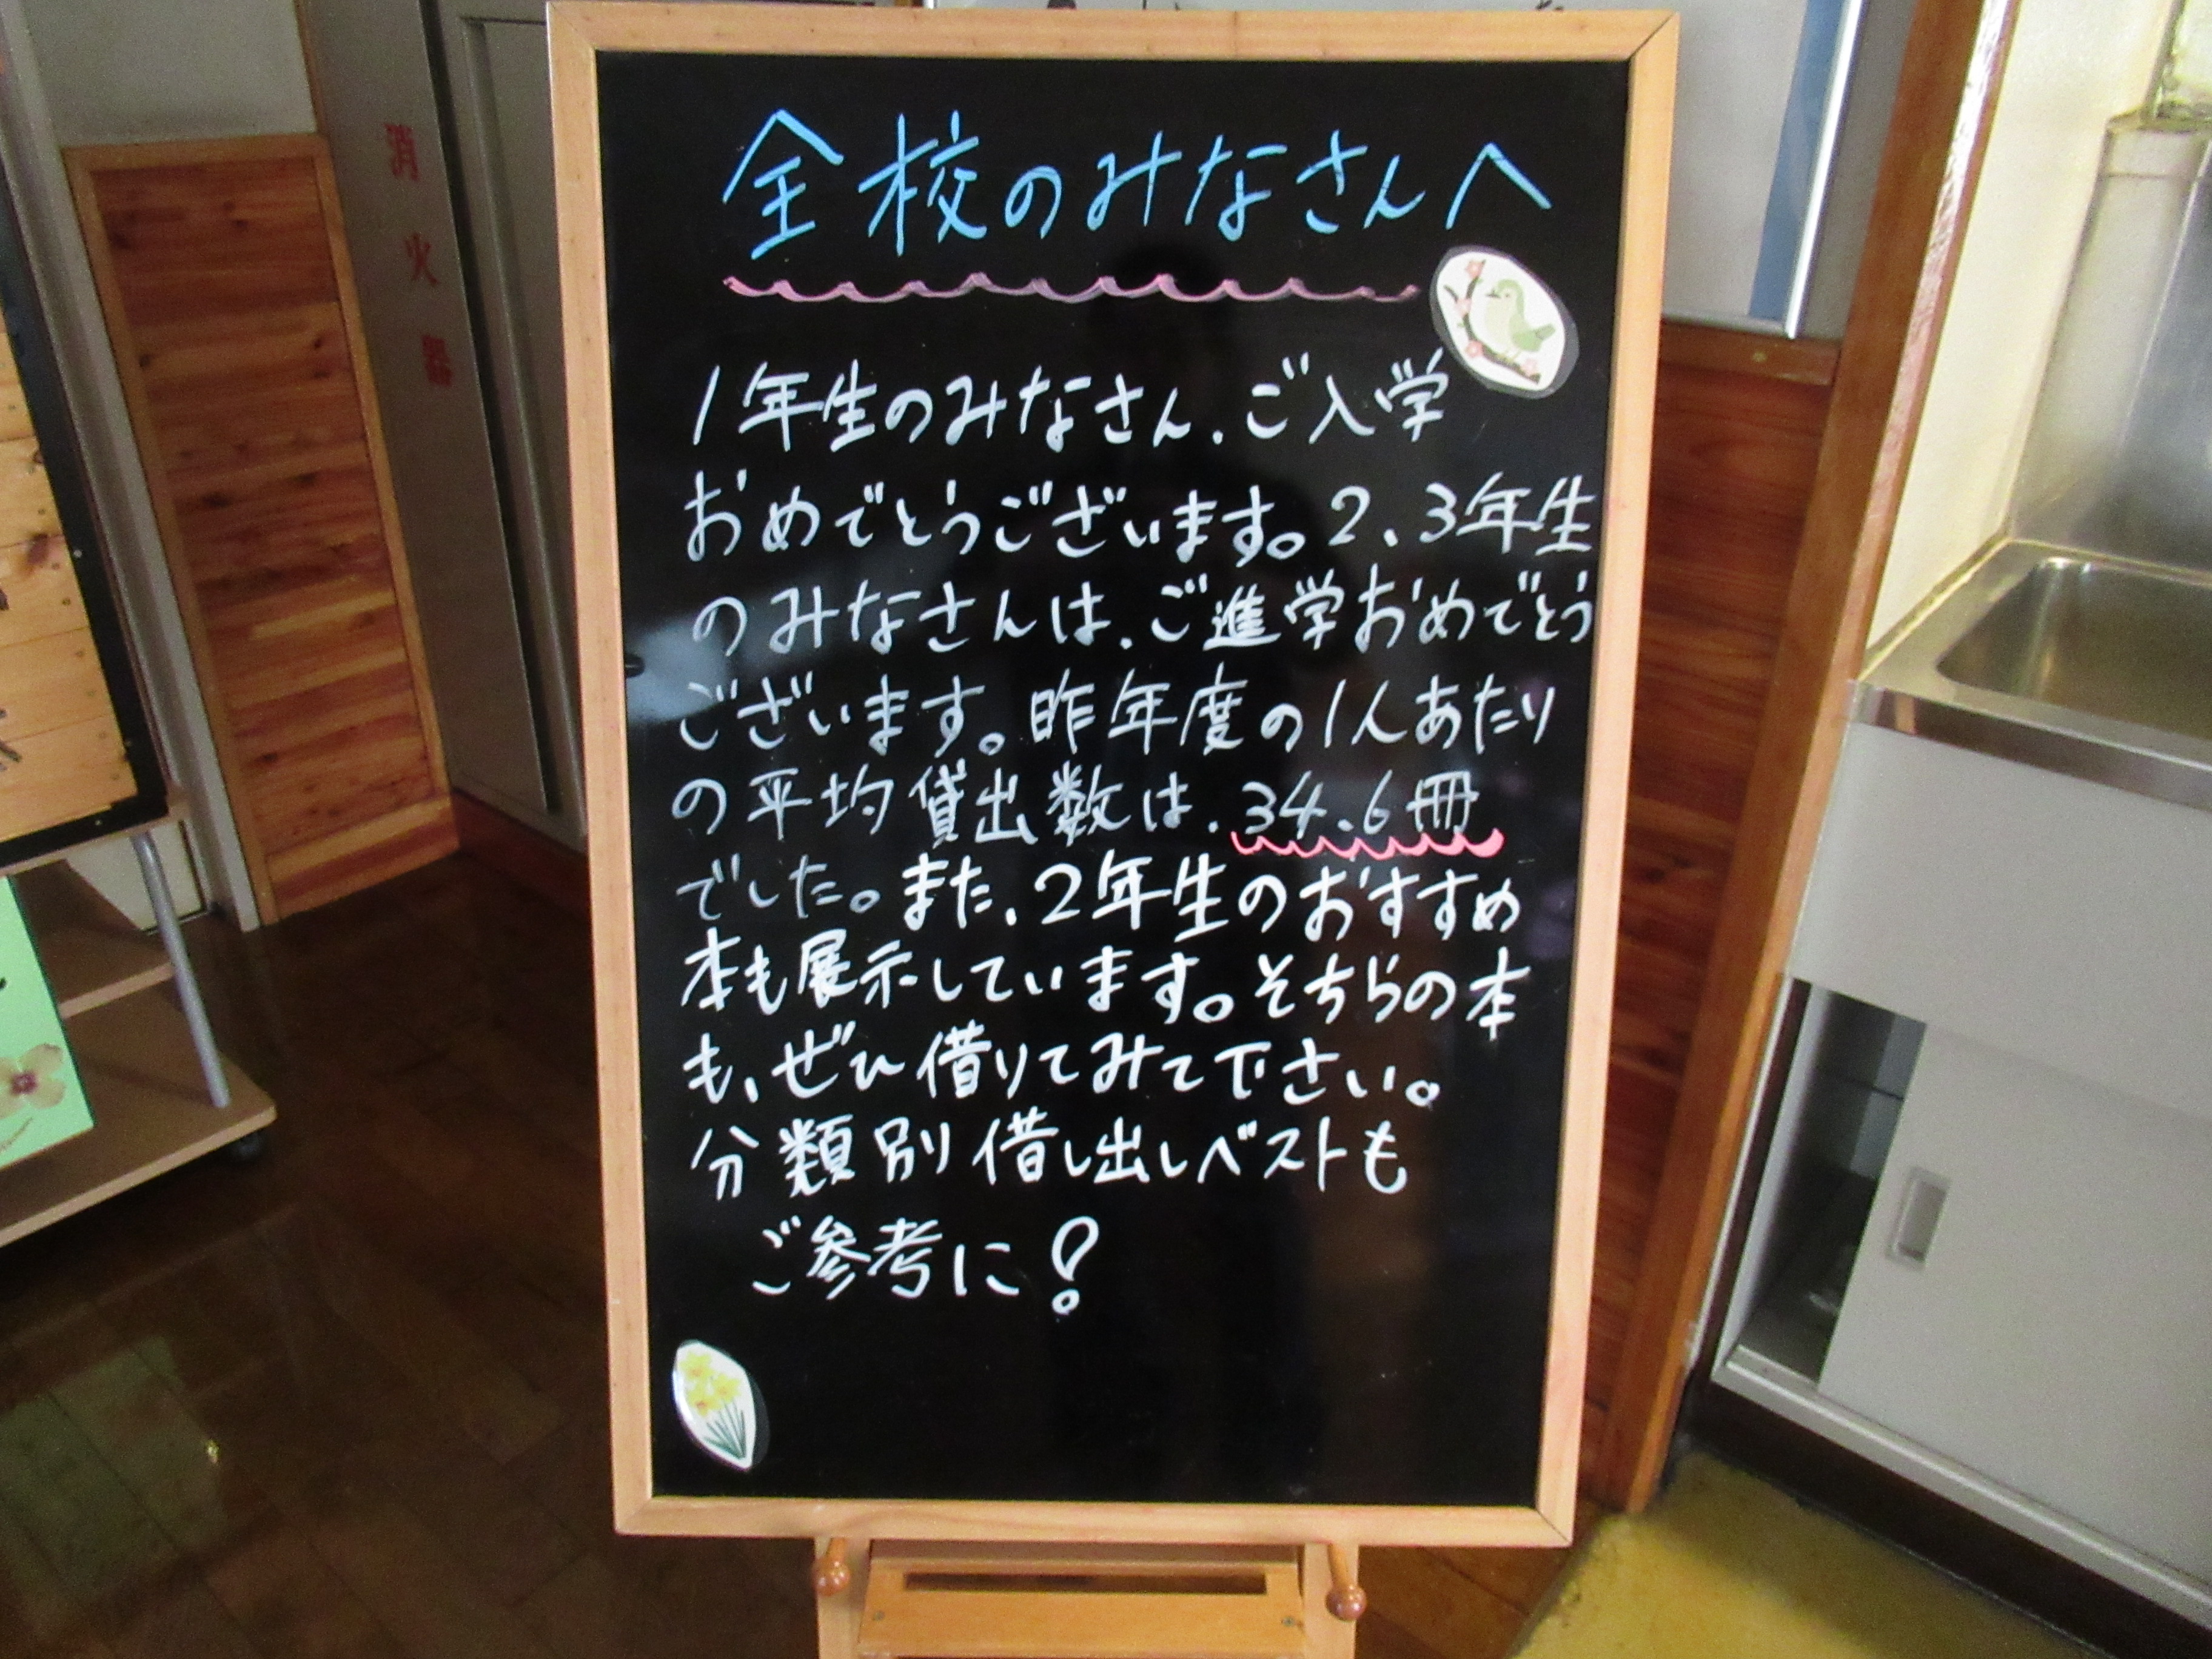 全校のみなさんへ
1年生のみなさん、ご入学
おめでとうございます。2、3年生
のみなさんは、ご進学おめでとう
ございます。昨年度の1人あたり
の平均貸出数は、34.6冊
でした。また、2年生のおすすめ
本も展示しています。そちらの本
も、ぜひ借りてみて下さい。
分類別借し出しベストも
ご参考に!
消火器